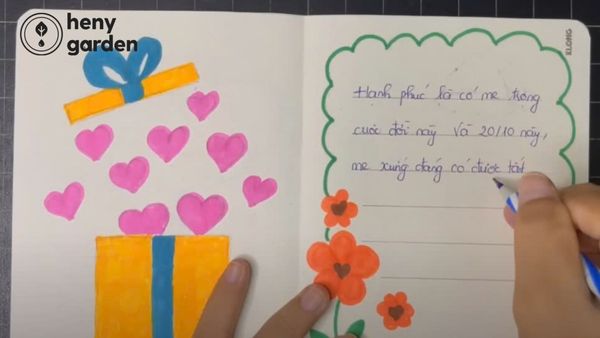 heny
garden
KLONG
Hạnh phúc là có mẹ trong
cuộc đời này Và 20/10 này,
mẹ xứng đáng có được tất